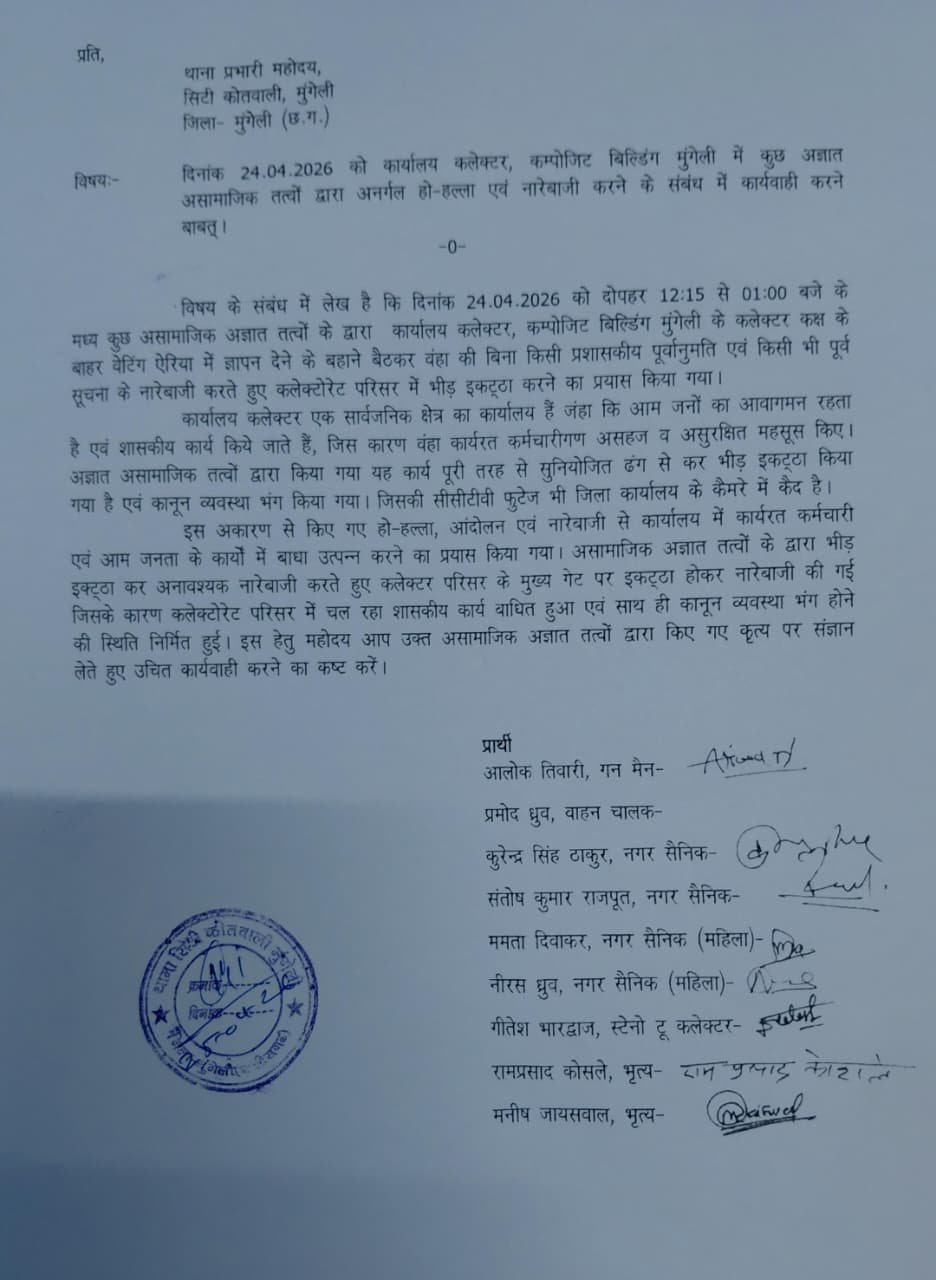 प्रति,
थाना प्रभारी महोदय,
सिटी कोतवाली, मुंगेली
जिला- मुंगेली (छ.ग.)
विषयः- दिनांक 24.04.2026 को कार्यालय कलेक्टर, कम्पोजिट बिल्डिंग मुंगेली में कुछ अज्ञात
असामाजिक तत्वों द्वारा अनर्गल हो-हल्ला एवं नारेबाजी करने के संबंध में कार्यवाही करने
बाबत्।
-0-
विषय के संबंध में लेख है कि दिनांक 24.04.2026 को दोपहर 12:15 से 01:00 बजे के
मध्य कुछ असामाजिक अज्ञात तत्वों के द्वारा कार्यालय कलेक्टर, कम्पोजिट बिल्डिंग मुंगेली के कलेक्टर कक्ष के
बाहर वेटिंग ऐरिया में ज्ञापन देने के बहाने बैठकर वंहा की बिना किसी प्रशासकीय पूर्वानुमति एवं किसी भी पूर्व
सूचना के नारेबाजी करते हुए कलेक्टोरेट परिसर में भीड़ इकट्ठा करने का प्रयास किया गया।
कार्यालय कलेक्टर एक सार्वजनिक क्षेत्र का कार्यालय हैं जंहा कि आम जनों का आवागमन रहता
है एवं शासकीय कार्य किये जाते हैं, जिस कारण वंहा कार्यरत कर्मचारीगण असहज व असुरक्षित महसूस किए।
अज्ञात असामाजिक तत्वों द्वारा किया गया यह कार्य पूरी तरह से सुनियोजित ढंग से कर भीड़ इकट्ठा किया
गया है एवं कानून व्यवस्था भंग किया गया। जिसकी सीसीटीवी फुटेज भी जिला कार्यालय के कैमरे में कैद है।
इस अकारण से किए गए हो-हल्ला, आंदोलन एवं नारेबाजी से कार्यालय में कार्यरत कर्मचारी
एवं आम जनता के कार्यों में बाधा उत्पन्न करने का प्रयास किया गया। असामाजिक अज्ञात तत्वों के द्वारा भीड़
इक्ट्ठा कर अनावश्यक नारेबाजी करते हुए कलेक्टर परिसर के मुख्य गेट पर इकट्ठा होकर नारेबाजी की गई
जिसके कारण कलेक्टोरेट परिसर में चल रहा शासकीय कार्य बाधित हुआ एवं साथ ही कानून व्यवस्था भंग होने
की स्थिति निर्मित हुई। इस हेतु महोदय आप उक्त असामाजिक अज्ञात तत्वों द्वारा किए गए कृत्य पर संज्ञान
लेते हुए उचित कार्यवाही करने का कष्ट करें।
प्रार्थी
आलोक तिवारी, गन मैन-
प्रमोद ध्रुव, वाहन चालक-
कुरेन्द्र सिंह ठाकुर, नगर सैनिक-
संतोष कुमार राजपूत, नगर सैनिक-
ममता दिवाकर, नगर सैनिक (महिला)-
नीरस ध्रुव, नगर सैनिक (महिला)-
गीतेश भारद्वाज, स्टेनो टू कलेक्टर-
रामप्रसाद कोसले, भृत्य- राम प्रसाद कोशले
मनीष जायसवाल, भृत्य-
थाना सिटी कोतवाली मुंगेली
क्रमांक
दिनांक